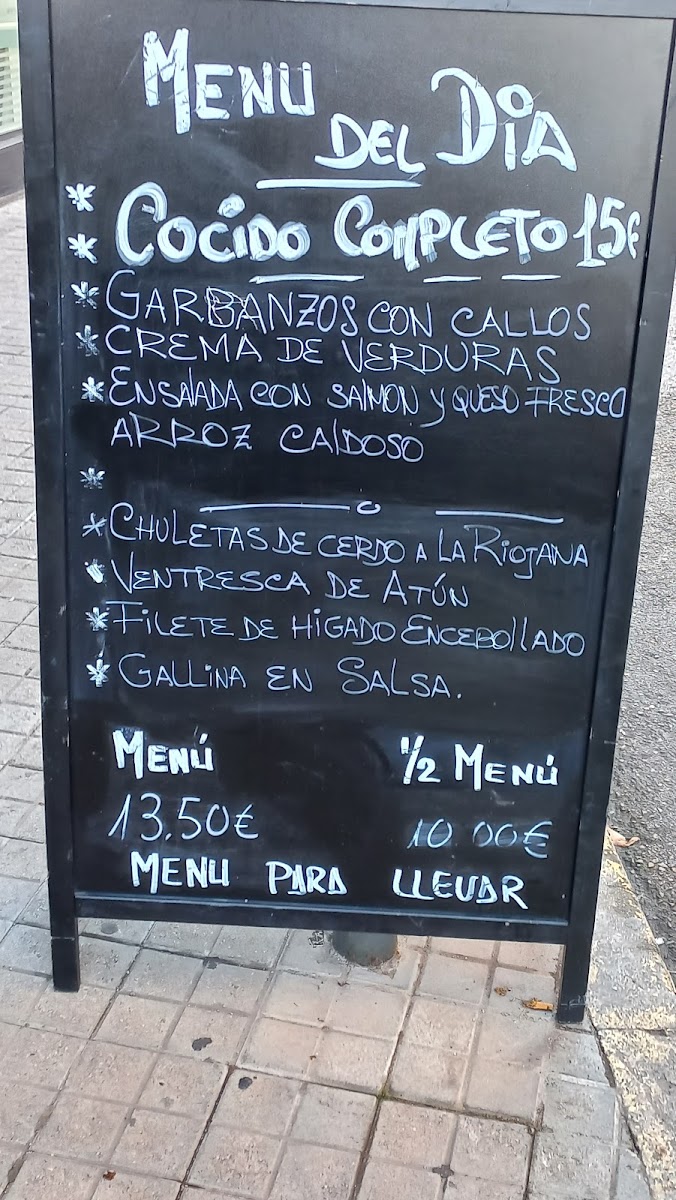 MENÚ
DEL DIA
* COCIDO COMPLETO 15€
*
* GARBANZOS CON CALLOS
* CREMA DE VERDURAS
* ENSALADA CON SALMON Y QUESO FRESCO
ARROZ CALDOSO
*
* CHULETAS DE CERDO A LA RIOJANA
* VENTRESCA DE ATÚN
* FILETE DE HIGADO ENCEBOLLADO
* GALLINA EN SALSA.
MENÚ 1/2 MENÚ
13,50€ 10 00€
MENU PARA LLEVAR